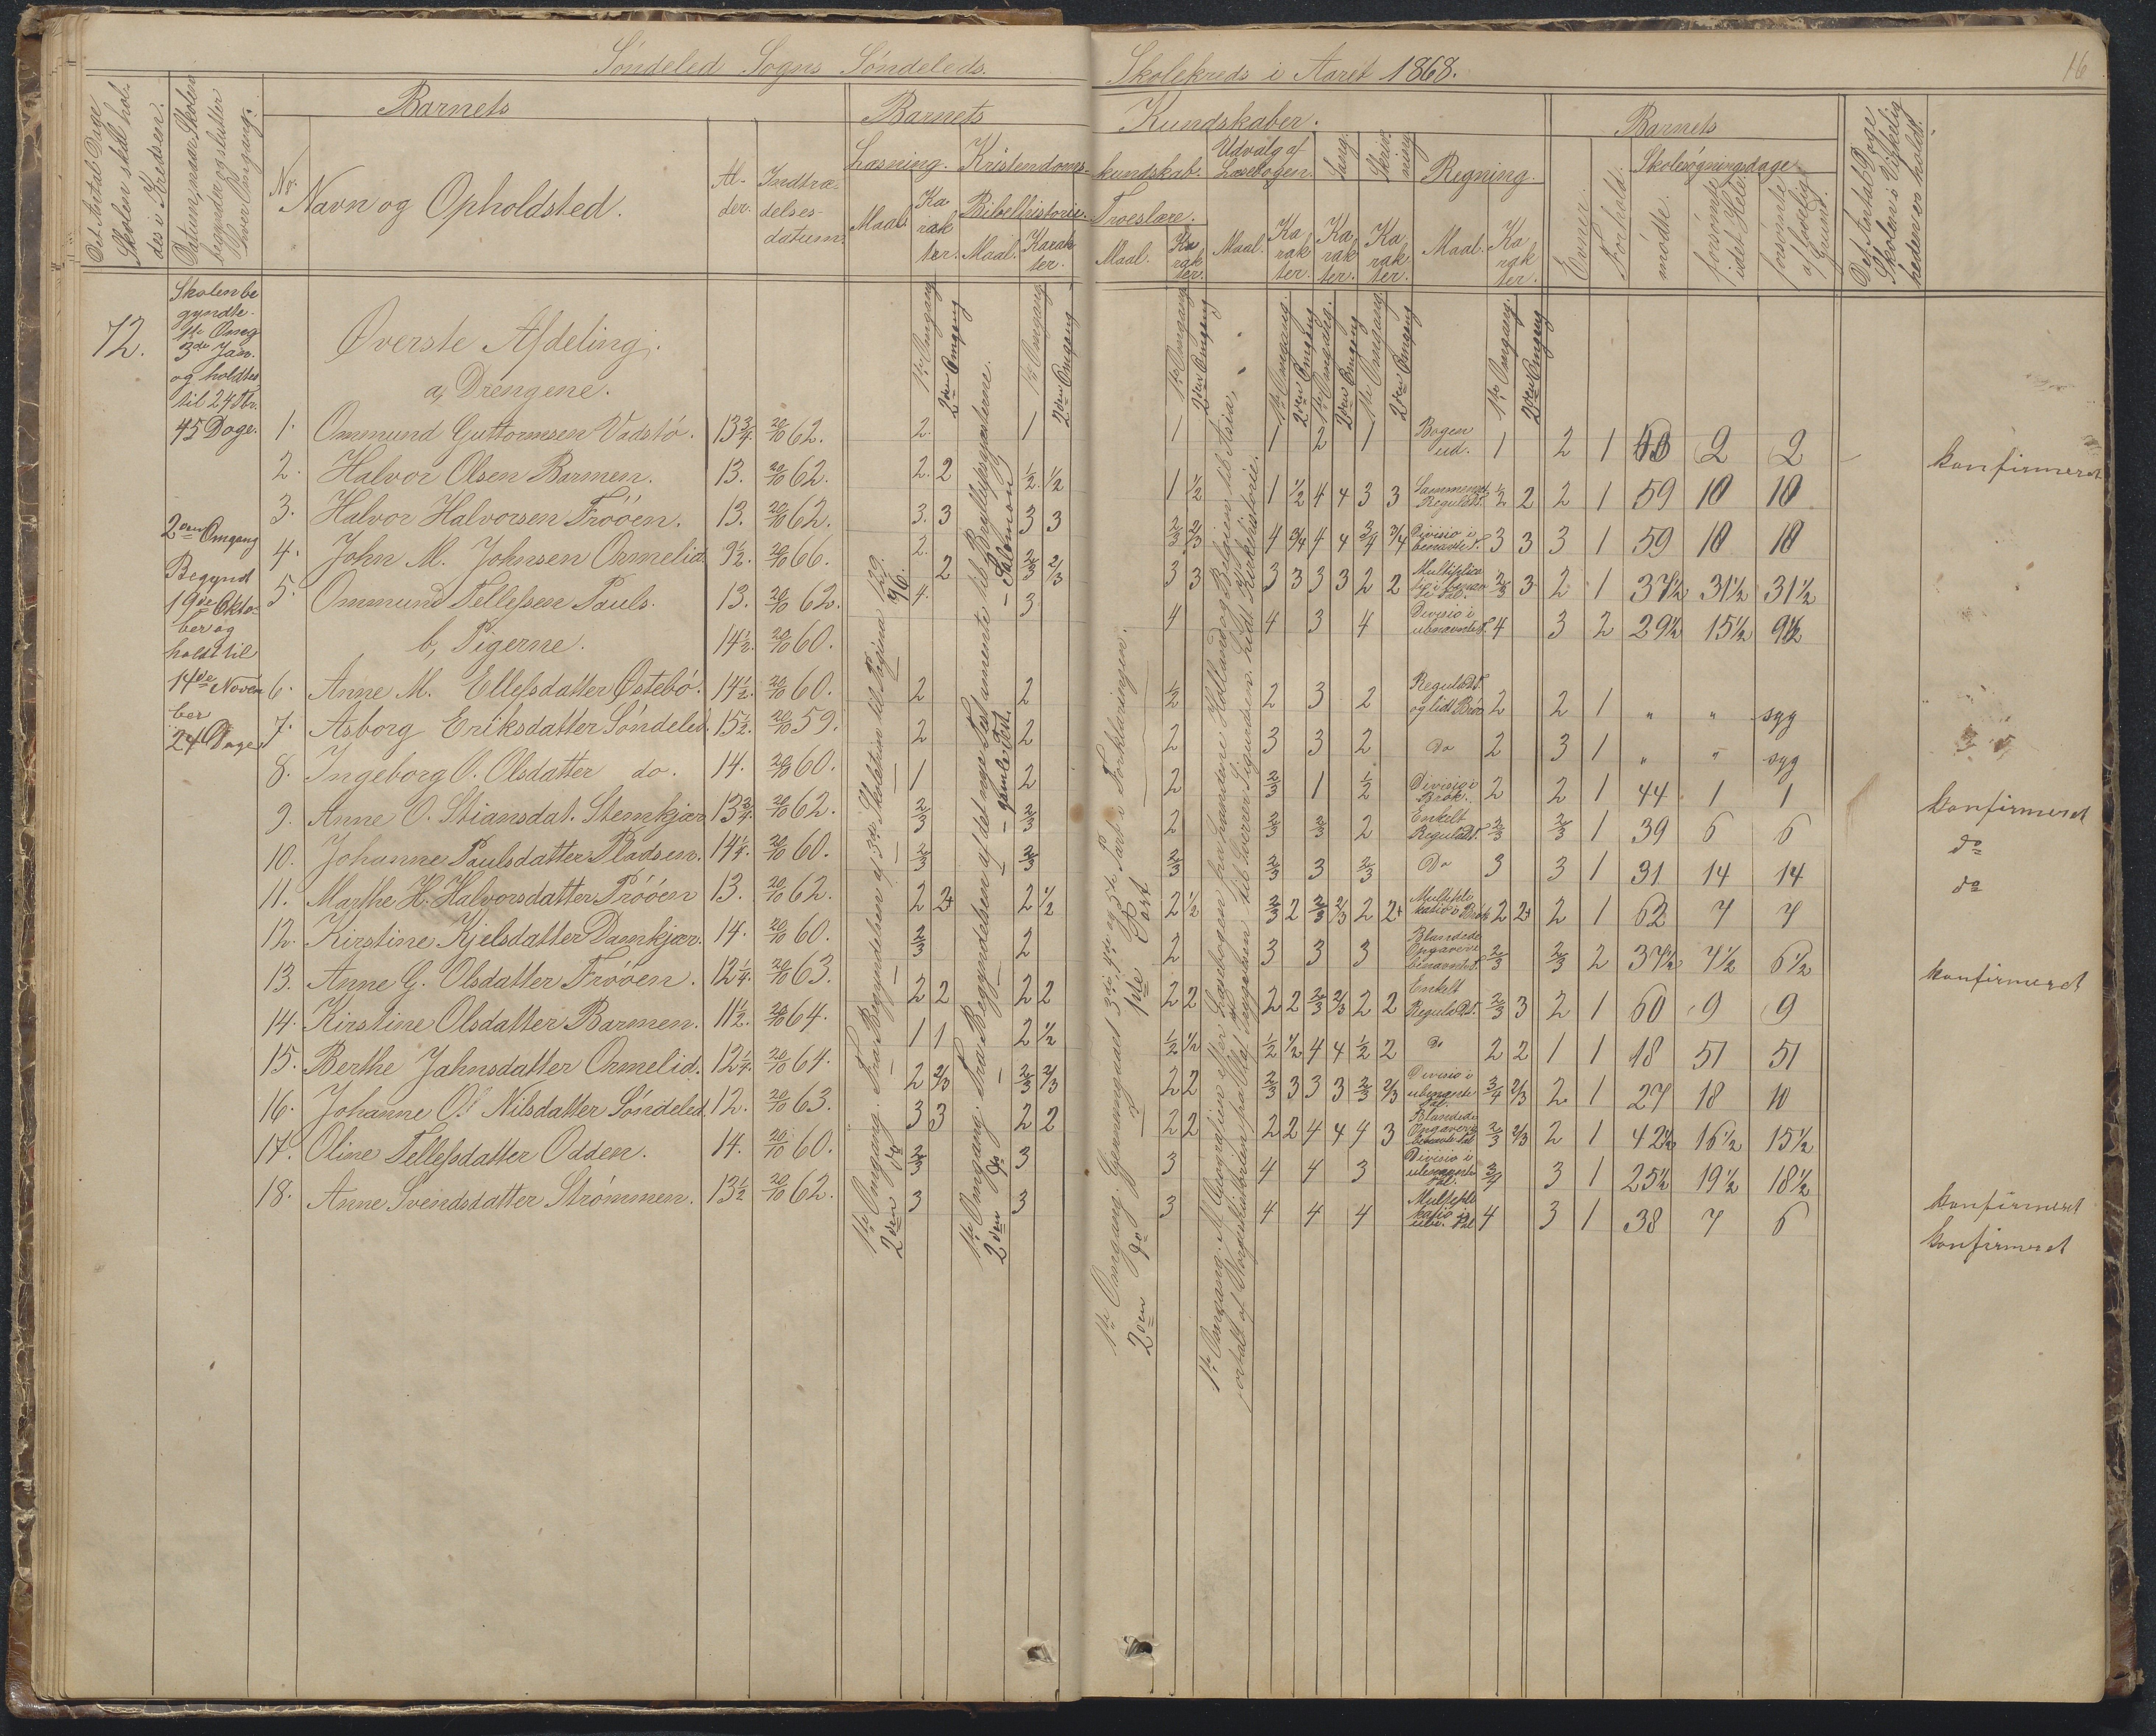 Søndeled Sogns Søndeleds.
Skolekreds i Aaret 1868.
16
Det Antal Dage Skolen skal holdes i Kredsen.
Datum, naar Skolen begynder og slutter hver Omgang.
Barnets
Nr.
Navn og Opholdsted.
Alder.
Indtrædelsesdatum.
Barnets
Kundskaber.
Læsning.
Maal.
Karakter.
Kristendomskundskab.
Bibelhistorie.
Maal. Karakter.
Troeslære.
Maal. Karakter.
Udvalg af Læsebogen.
Maal. Karakter.
Sang.
Karakter.
Skrivning
Karakter.
Regning.
Maal. Karakter.
Barnets
Evner.
Forhold.
Skolesøgningsdage.
mødte.
forsømte i det Hele.
forsømte af lovlig Grund.
Det Antal Dage Skolen i Virkeligheden er holdt.
72.
Skolen begyndte
1ste Omg
3die Jan.
og holdtes
til 24
45 Dage.
2den Omgang
Begynd
19de Oktober og
holdt til
14de November
24 Dage
Øverste Afdeling.
a, Drengene.
1ste Omgang
2den Omgang
1. Ommund Guttormsen Vadstø. 13 3/4. 20/10 62. 2. 1 1 1 2 1 Bogen ud. 1 2 1 43 2 2 konfirmeret
2. Halvor Olsen Barmen. 13. 20/10 62. 2. 2 1/2. 1/2 1 1/2 1 1/2 4 4 3 3 1/2 2 2 1 59 10 10
3. Halvor Halvorsen Frøøen. 13. 20/10 62. 3. 3 3 3 2/3 2/3 4 3/4 4 4 3/4 3/4 Divisio i benævnte T. 3 3 3 1 59 10 10
4. John M. Johnsen Ormelid. 9 1/2. 20/10 66. 2. 2 2/3 2/3 3 3 3 3 3 3 2 2 2/3 3 2 1 37 1/2 31 1/2 31 1/2
5. Ommund Tellefsen Pauls. 13. 20/10 62. 4. 3 4 4 3 4 Divisio i ubenævnte T. 4 3 2 29 1/2 15 1/2 9 1/2
b, Pigerne. 14 1/2. 20/10 60.
6. Anne M. Ellefsdatter Østebø. 14 1/2. 20/10 60. 2 2 1/2 2 3 2 Regula Dt. og lidt Brøk 2 2 1 " " syg
7. Asborg Eriksdatter Søndeled. 15 1/2. 20/10 59. 2 2 2 3 3 2 Do 2 3 1 " " syg
8. Ingeborg O. Olsdatter do. 14. 20/10 60. 1 2 2 2/3 1 1/2 Divisio i Brøk. 2 2 1 44 1 1 konfirmeret
9. Anne O. Stiansdat. Stemkjær 13 3/4. 20/10 62. 2/3 2/3 2 2/3 2/3 2 Enkelt Regula Dt. 2/3 2/3 1 39 6 6 do
10. Johanne Paulsdatter Pladsen. 14 1/4. 20/10 60. 2/3 2/3 2/3 2/3 3 2/3 Do 3 3 1 31 14 14 do
11. Marthe H. Halvorsdatter Frøøen 13. 20/10 62. 2 2+ 2 1/2 2 1/2 2/3 2 2/3 2/3 2 2+ Multiplikatio i Brøk 2 2+ 2 1 62 7 7
12. Kirstine Kjelsdatter Damkjær. 14. 20/10 60. 2/3 2 2 3 3 3 Blandede Opgaver i benævnte T. 2/3 2/3 2 37 1/2 7 1/2 6 1/2 konfirmeret
13. Anne G. Olsdatter Frøøen. 12 1/4. 20/10 63. 2 2 2 2 2 2 2 2 2/3 2/3 2 2 Enkelt Regula Dt. 2/3 3 2 1 60 9 9
14. Kirstine Olsdatter Barmen. 11 1/2. 20/10 64. 1 1 2 1/2 1/2 1/2 1/2 1/2 4 4 1/2 2 Do 2 2 1 1 18 51 51
15. Berthe Jahnsdatter Ormelid. 12 1/4. 20/10 64. 2 2/3 2/3 2/3 2 2 2/3 3 3 3 2/3 2/3 Divisio i ubenævnte Tal. 3/4 2/3 2 1 27 18 10
16. Johanne O. Nilsdatter Søndeled. 12. 20/10 63. 3 3 2 2 2 2 2 2 4 4 4 3 Blandede Opgaver i benævnte Tal 2/3 2/3 2 1 42 1/2 16 1/2 15 1/2
17. Oline Tellefsdatter Odden. 14. 20/10 60. 2/3 3 3 4 4 3 Divisio i ubenævnte Tal. 3/4 3 1 25 1/2 19 1/2 18 1/2 konfirmeret
18. Anne Svendsdatter Strømmen. 13 1/2 20/10 62. 3 3 3 4 4 4 Multiplikatio i ube. Tal 4 3 1 38 7 6 konfirmeret
1ste Omgang. Fra Begyndelsen af 3die Skoletrin til Pagina 129.
2den do — — — 96.
1ste Omgang. Fra Begyndelsen af det nye Testamente til Bryllupsgjæsterne.
2den do — — gamle Test. — Salomon
1ste Omgang. Gjennemgaaet 3die, 4de og 5te Part i Forklaringen.
2den do 1ste Part
1ste Omgang. Af Geografien efter Læsebogen fra Landene Holland og Belgien til Asia,
fortalt af Norgeshistorien fra Olaf til Sverre Sigurdsen. Lidt Kirkehistorie.